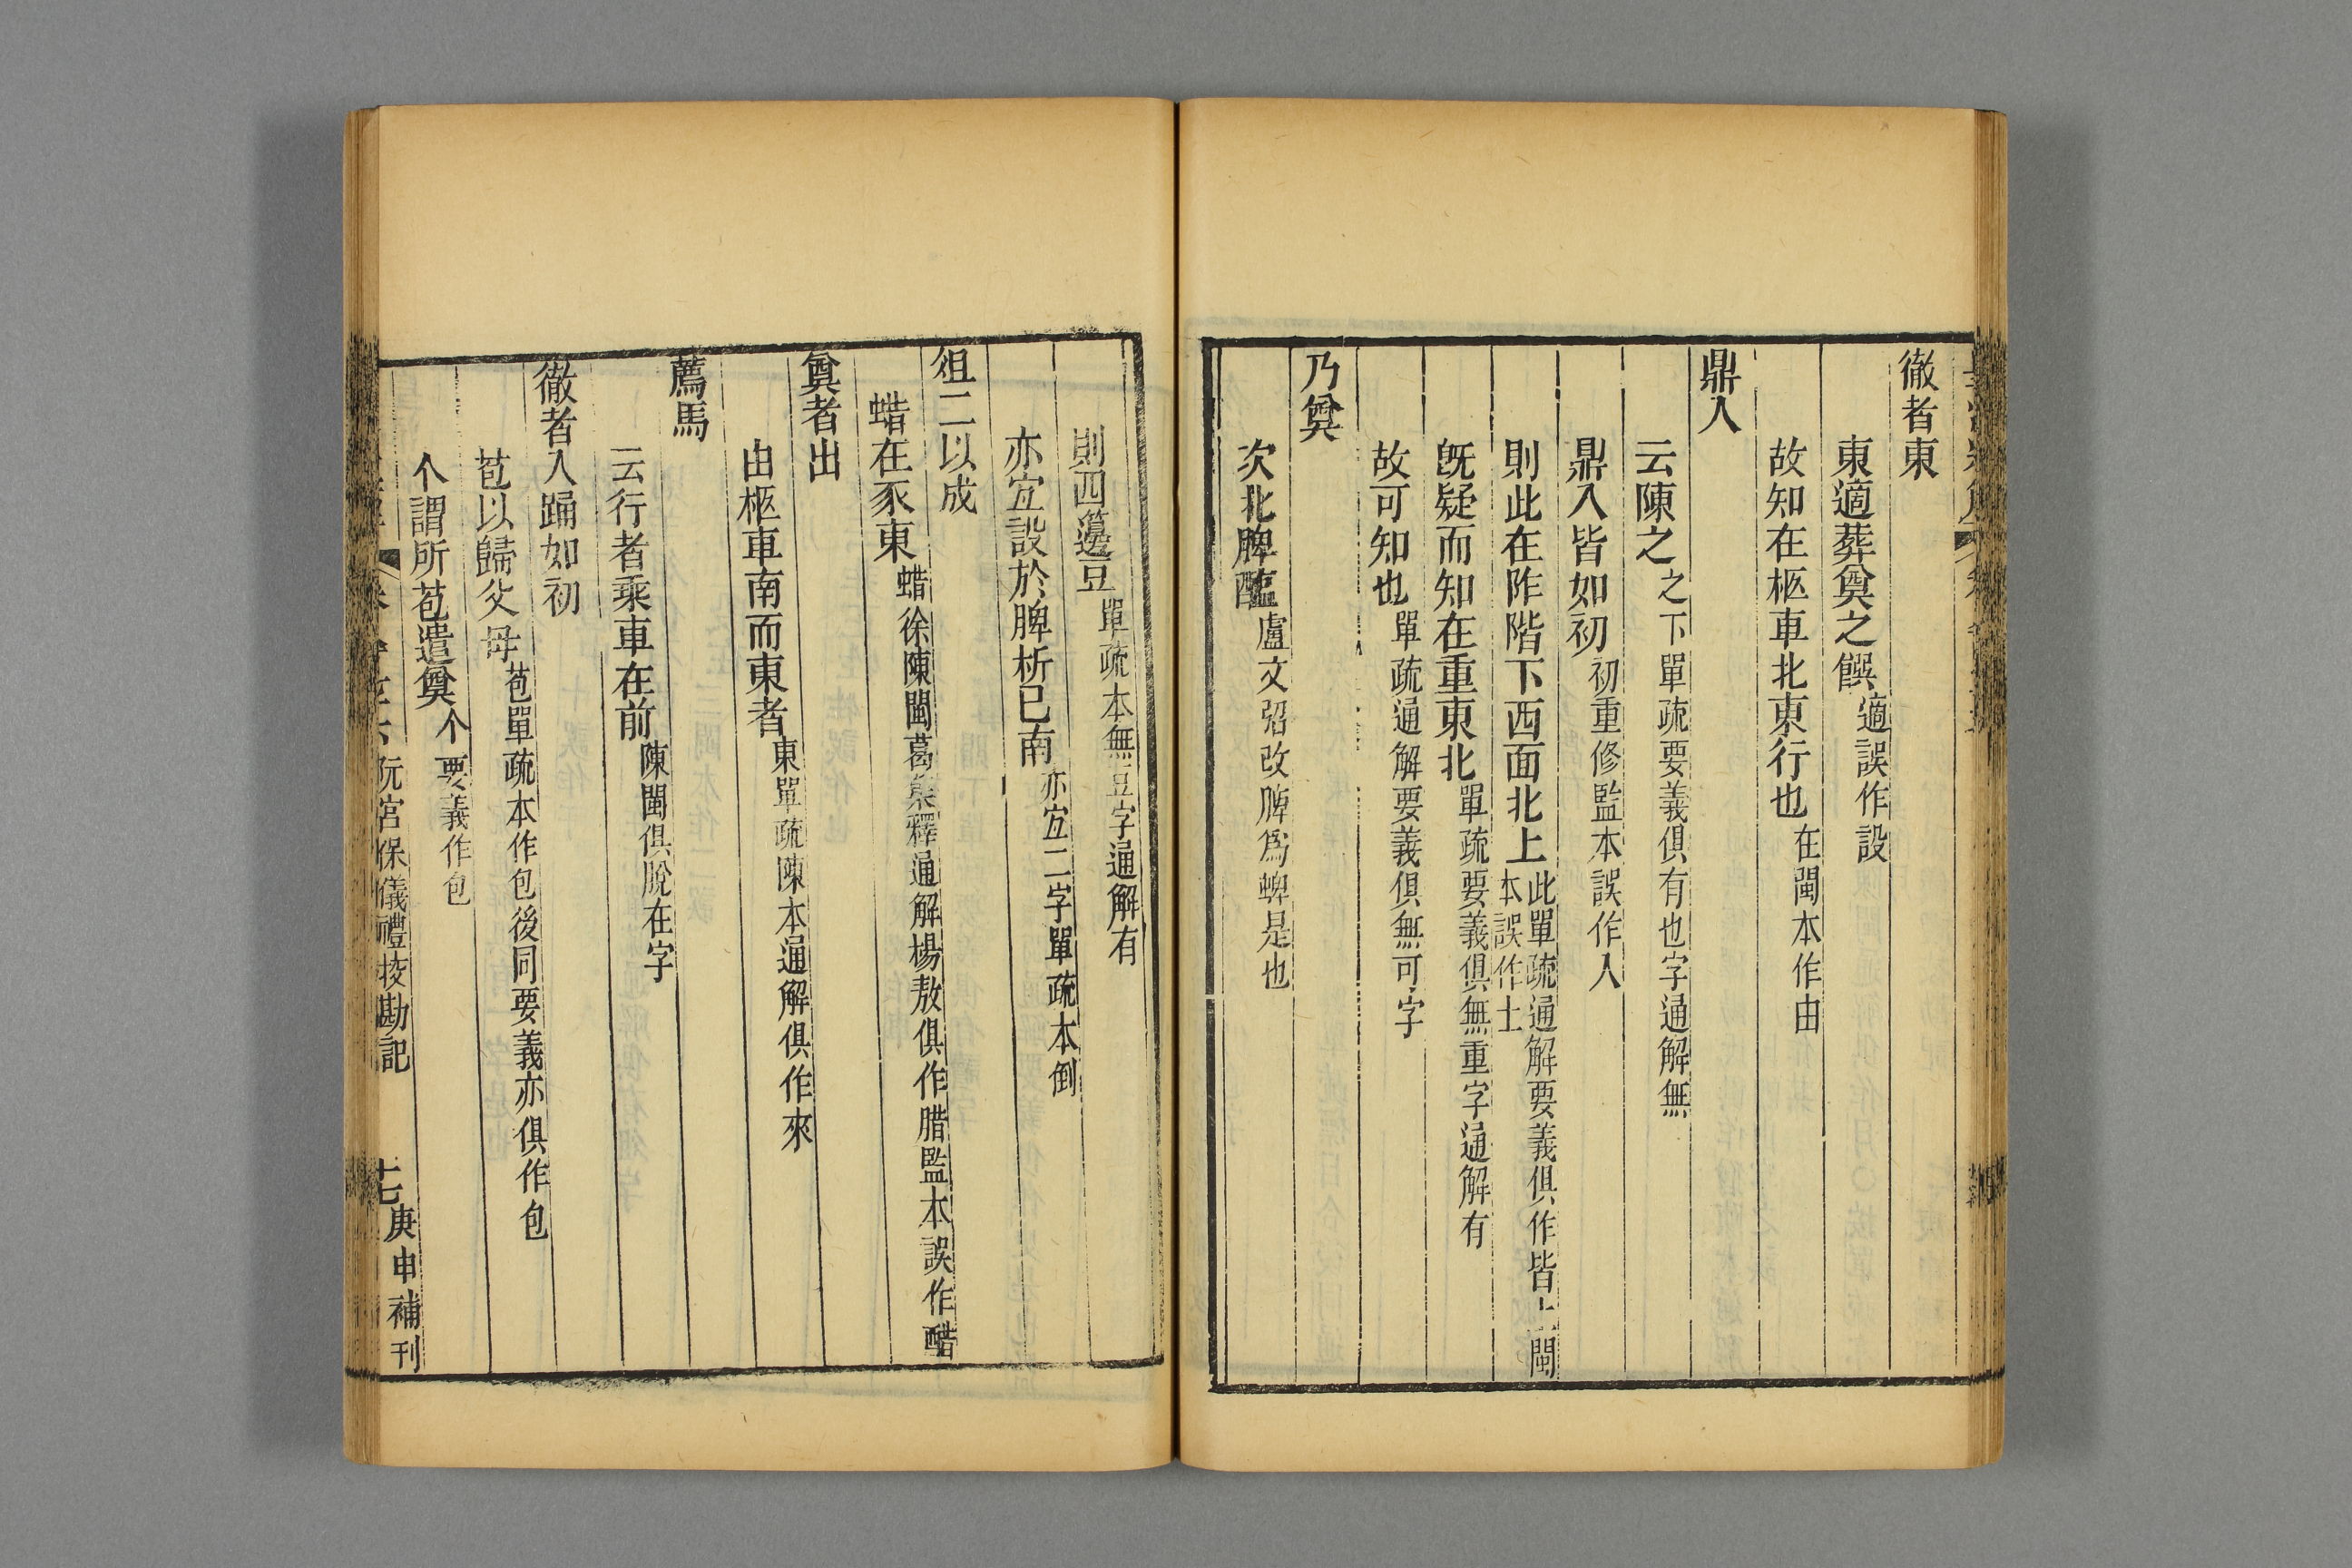 徹者東
東適葬奠之饌適誤作設
故知在柩車北東行也在閩本作由
鼎入
云陳之之下單疏要義俱有也字通解無
鼎入皆如初初重修監本誤作人
則此在阼階下西面北上此單疏通解要義俱作皆上閩本誤作士
旣疑而知在重東北單疏要義俱無重字通解有
故可知也單疏通解要義俱無可字
乃奠
次北脾醢盧文弨改脾爲蜱是也
則四籩豆單疏本無豆字通解有
亦宜設於脾析已南亦宜二字單疏本倒
俎二以成
蜡在豕東蜡徐陳閩葛集釋通解楊敖俱作腊監本誤作醋
奠者出
由柩車南而東者東單疏陳本通解俱作來
薦馬
云行者乘車在前陳閩俱脫在字
徹者入踊如初
苞以歸父母苞單疏本作包後同要義亦俱作包
个謂所苞遣奠个要義作包
阮宮保儀禮挍勘記
十七
庚申補刊